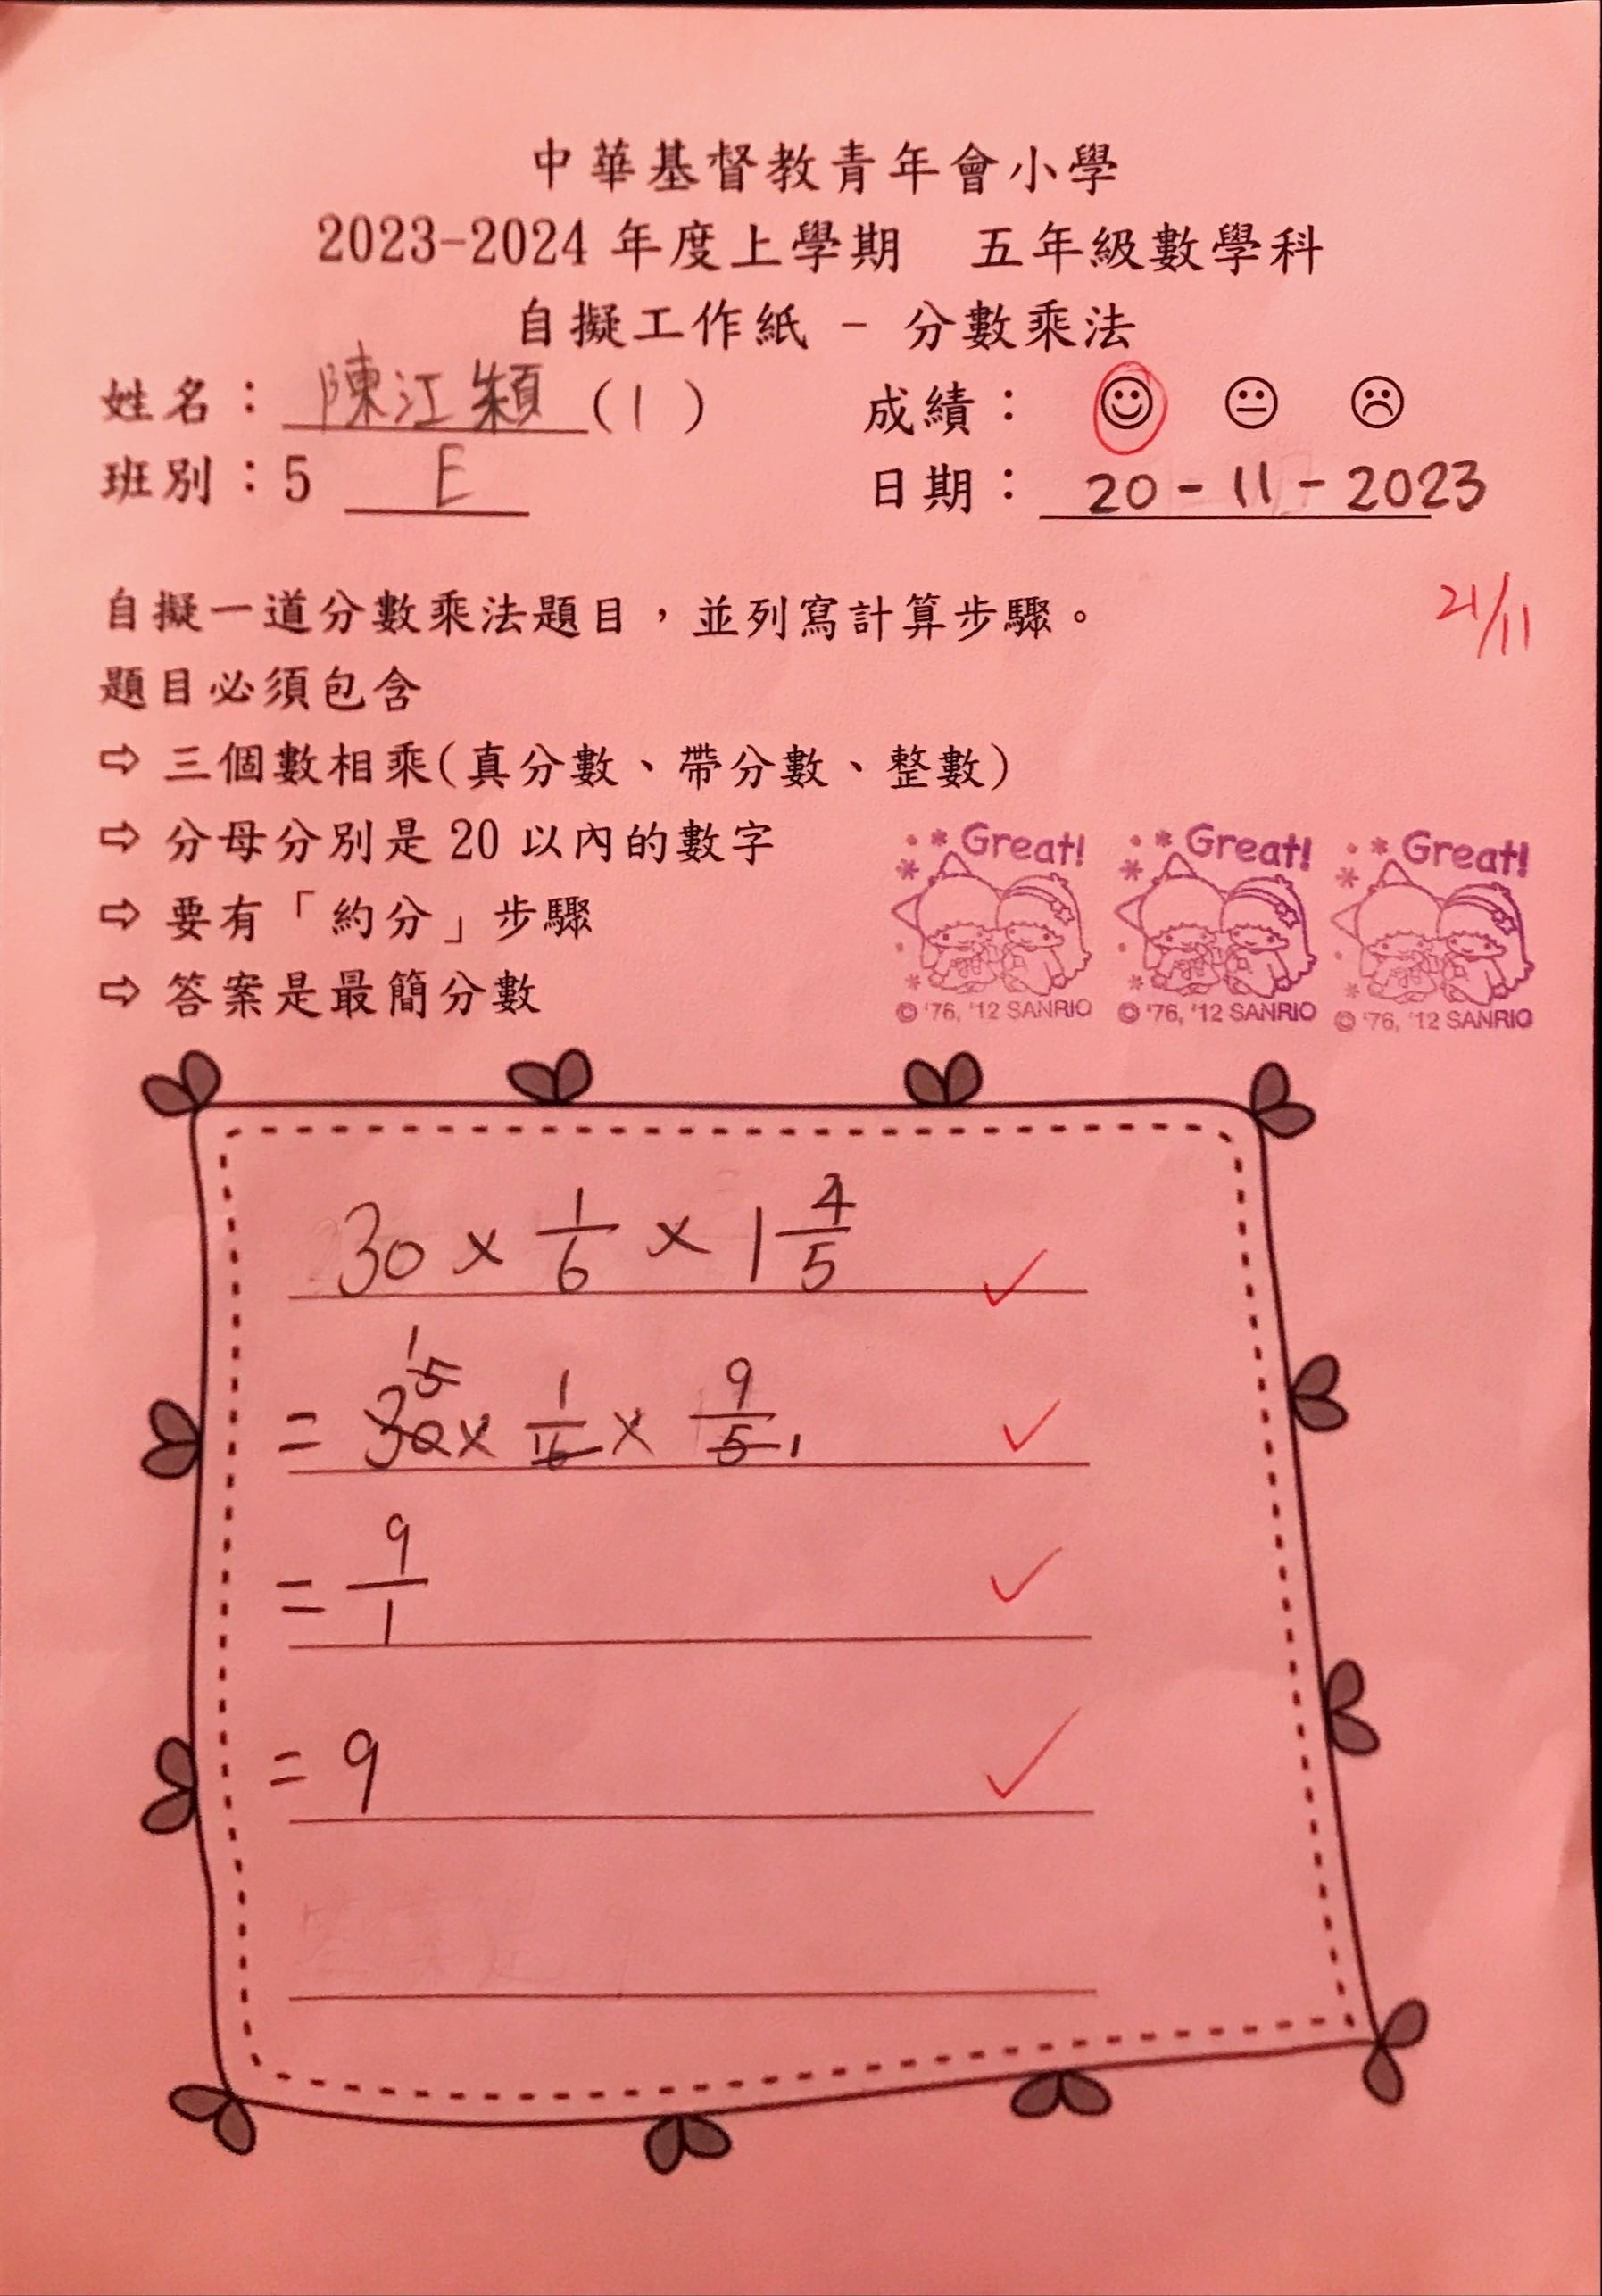 中華基督教青年會小學
2023-2024 年度上學期 五年級數學科
自擬工作紙 - 分數乘法
姓名：陳江穎（1） 成績：
班別：5 E 日期：20-11-2023
自擬一道分數乘法題目，並列寫計算步驟。
21/11
題目必須包含
⇨ 三個數相乘(真分數、帶分數、整數)
⇨ 分母分別是 20 以內的數字
⇨ 要有「約分」步驟
⇨ 答案是最簡分數
Great! Great! Great!
© '76, '12 SANRIO © '76, '12 SANRIO © '76, '12 SANRIO
30 × 1/6 × 1 4/5
1 5
= 30 × 1/6 × 9/5 1
= 9/1
= 9